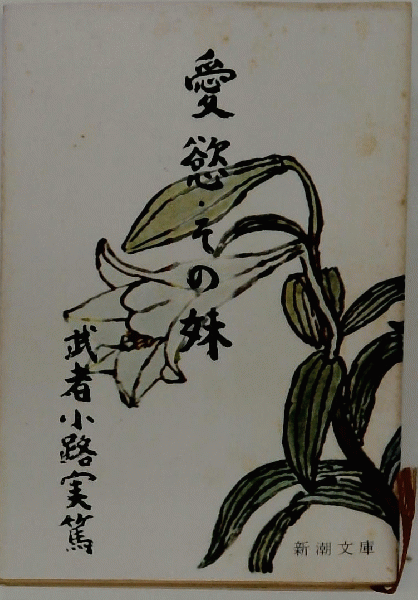 愛慾・その妹
武者小路実篤
新潮文庫